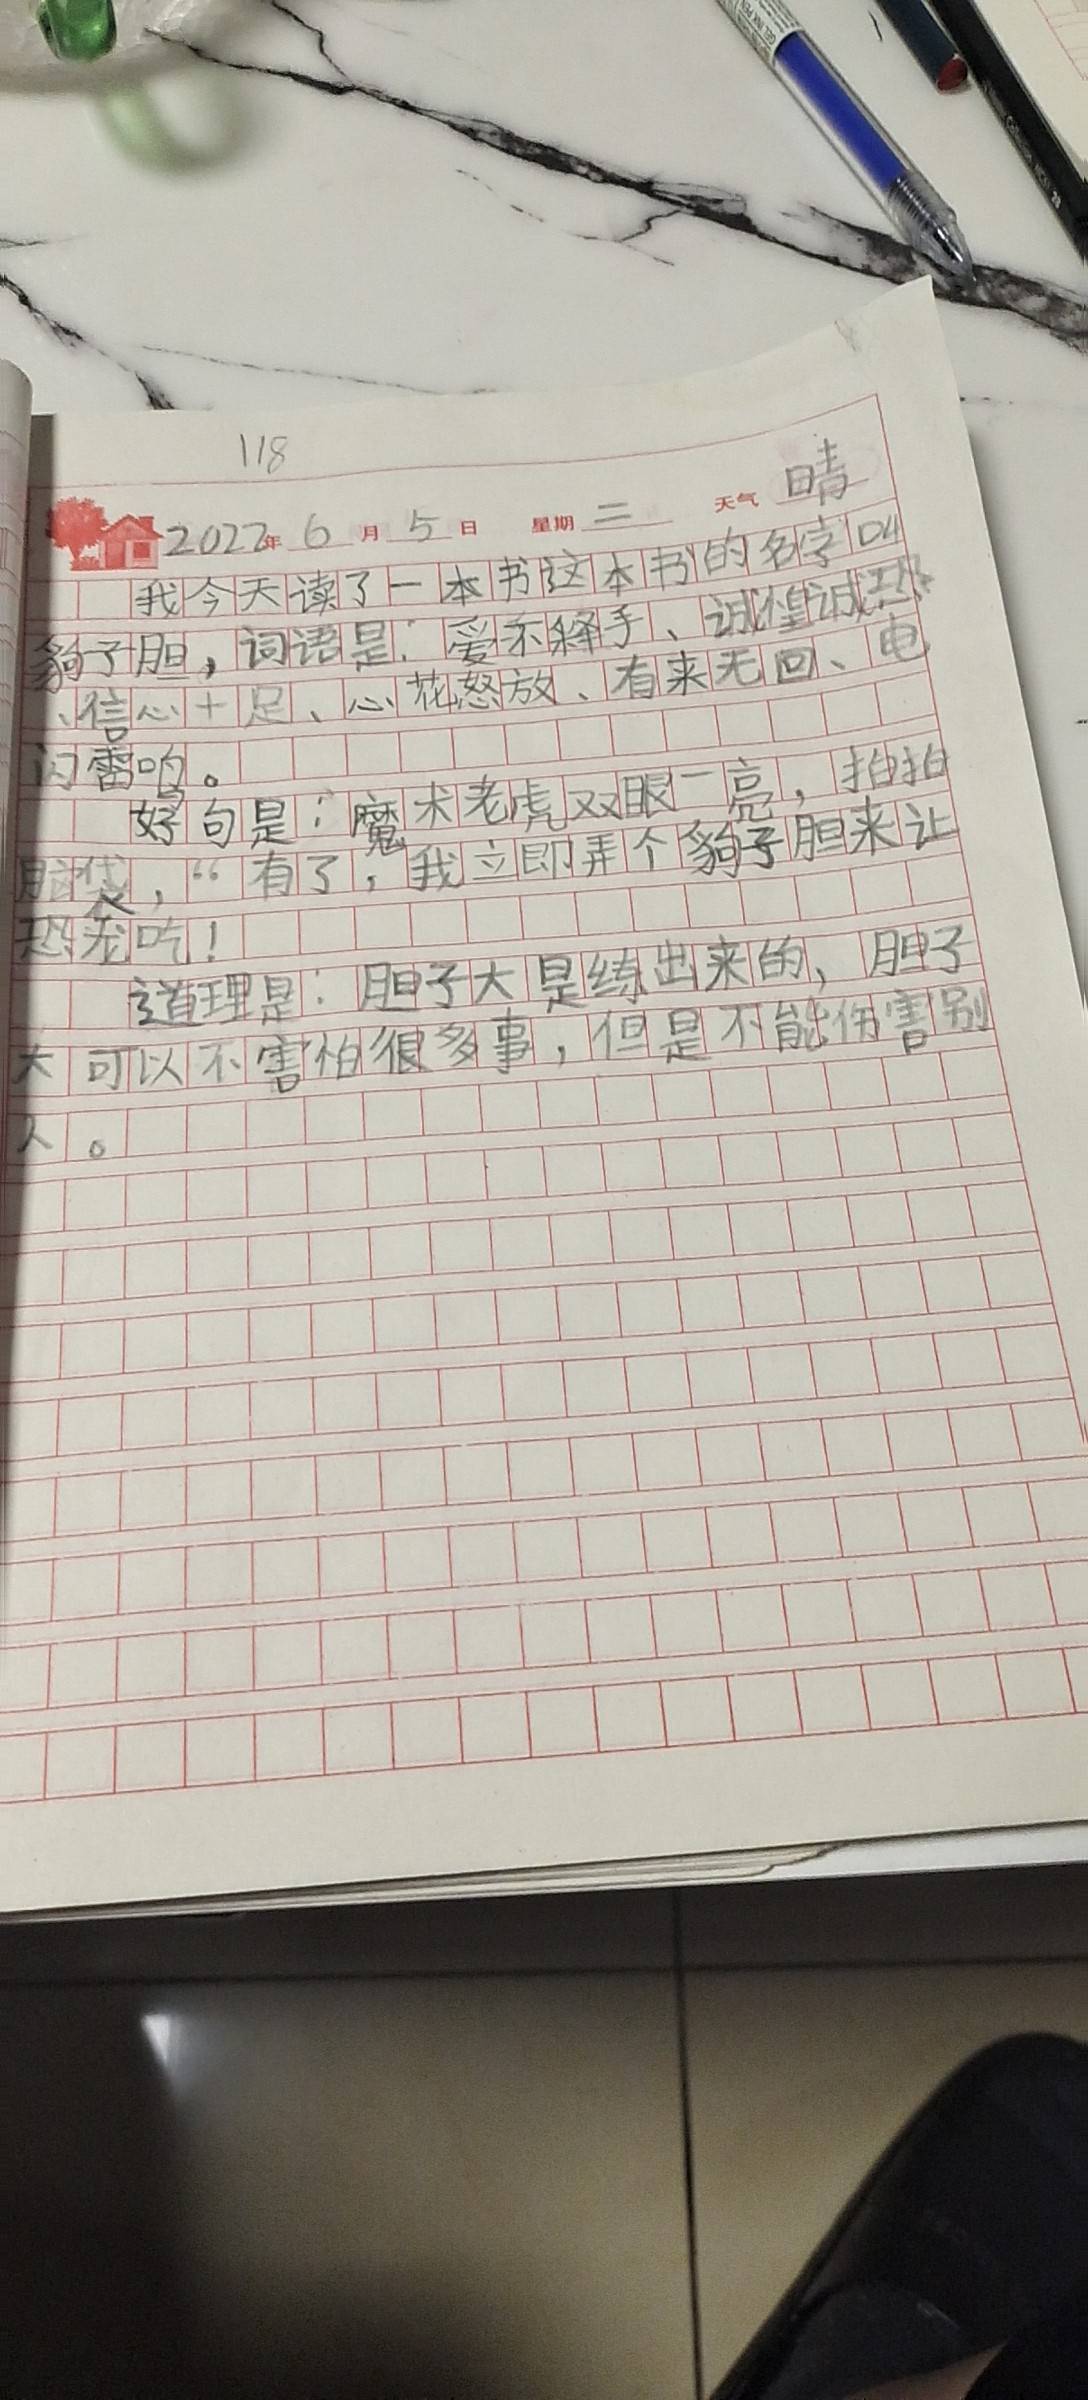 GEL INK PEN
118
2022年 6 月 5 日 星期 二 天气 晴
我今天读了一本书这本书的名字叫
豹子胆，词语是：爱不释手、诚惶诚恐
、信心十足、心花怒放、有来无回、电
闪雷鸣。
好句是：魔术老虎双眼一亮，拍拍
脑袋，“有了，我立即弄个豹子胆来让
恐龙吃！
道理是：胆子大是练出来的，胆子
大可以不害怕很多事，但是不能伤害别
人。